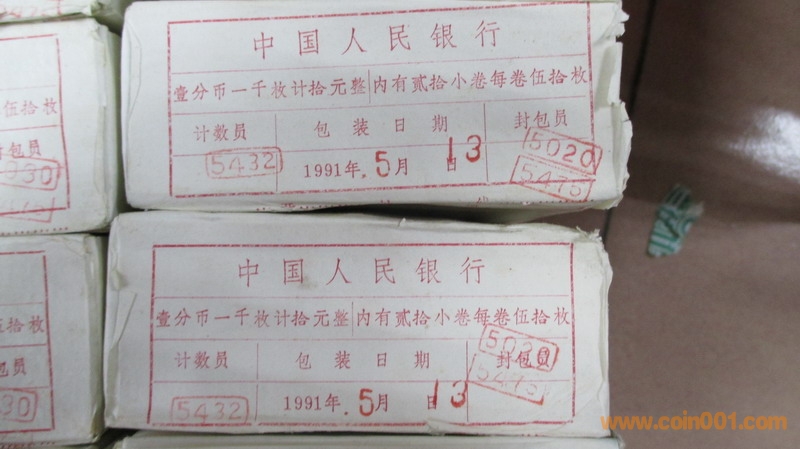 中国人民银行
壹分币一千枚计拾元整 内有贰拾小卷每卷伍拾枚
计数员 包装日期 封包员
5432 1991年.5月 日13 5020
5475
伍拾枚
封包员
中国人民银行
壹分币一千枚计拾元整 内有贰拾小卷每卷伍拾枚
计数员 包装日期 封包员
5432 1991年.5月 日13 5020
5475
伍拾枚
包员
www.coin001.com